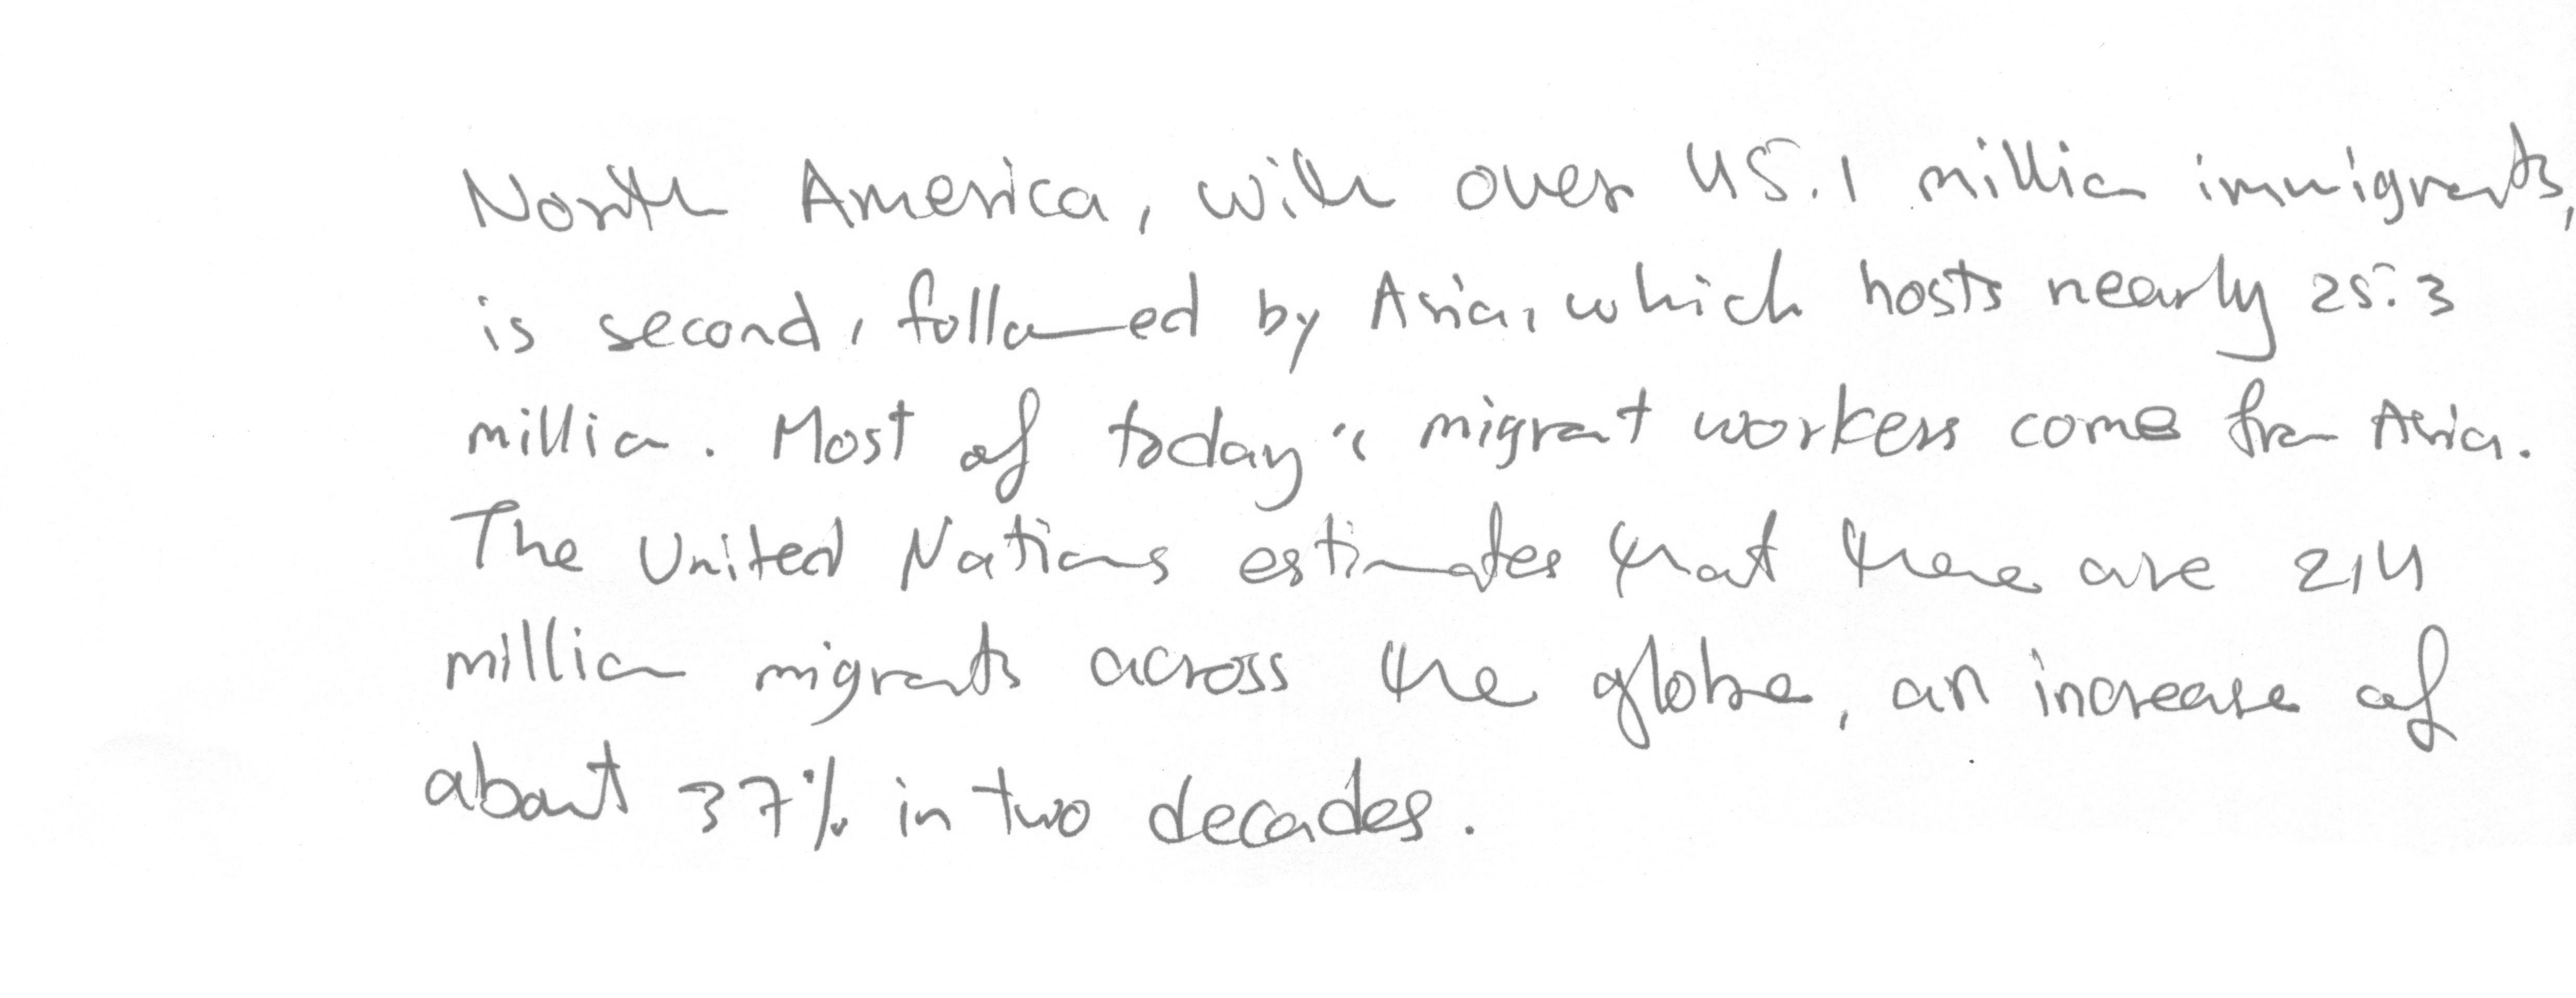 North America, with over 45.1 million immigrants,
is second, followed by Asia, which hosts nearly 25.3
million. Most of today's migrant workers come from Asia.
The United Nations estimates that there are 214
million migrants across the globe, an increase of
about 37% in two decades.